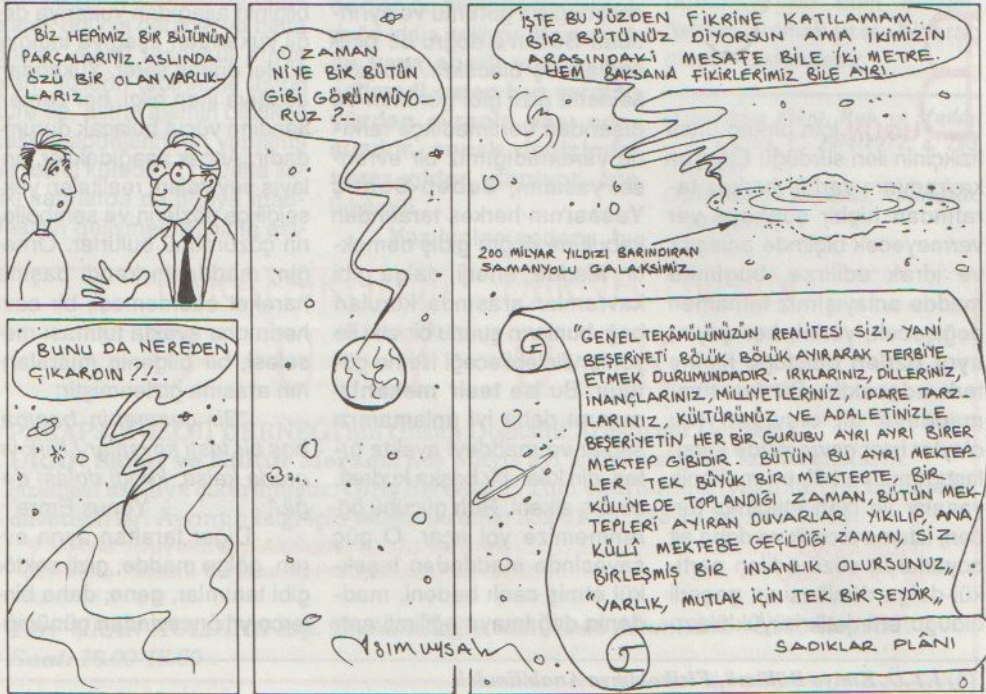 BİZ HEPİMİZ BİR BÜTÜNÜN
PARÇALARIYIZ. ASLINDA
ÖZÜ BİR OLAN VARLIK-
LARIZ.
BUNU DA NEREDEN
ÇIKARDIN?...
O ZAMAN
NİYE BİR BÜTÜN
GİBİ GÖRÜNMÜYO-
RUZ ?...
İŞTE BU YÜZDEN FİKRİNE KATILAMAM.
BİR BÜTÜNÜZ DİYORSUN AMA İKİMİZİN
ARASINDAKİ MESAFE BİLE İKİ METRE.
HEM BAKSANA FİKİRLERİMİZ BİLE AYRI.
200 MİLYAR YILDIZI BARINDIRAN
SAMANYOLU GALAKSİMİZ.
"GENEL TEKAMÜLÜNÜZÜN REALİTESİ SİZİ, YANİ
BEŞERİYETİ BÖLÜK, BÖLÜK AYIRARAK TERBİYE
ETMEK DURUMUNDADIR. IRKLARINIZ, DİLLERİNİZ,
İNANÇLARINIZ, MİLLİYETLERİNİZ, İDARE TARZ-
LARINIZ, KÜLTÜRÜNÜZ VE ADALETİNİZLE
BEŞERİYETİN HER BİR GURUBU AYRI AYRI BİRER
MEKTEP GİBİDİR. BÜTÜN BU AYRI MEKTEP-
LER TEK BÜYÜK BİR MEKTEPTE, BİR
KÜLLİYEDE TOPLANDIĞI ZAMAN, BÜTÜN MEK-
TEPLERİ AYIRAN DUVARLAR YIKILIP, ANA
KÜLLİ MEKTEBE GEÇİLDİĞİ ZAMAN, SİZ
BİRLEŞMİŞ BİR İNSANLIK OLURSUNUZ,,
"VARLIK, MUTLAK İÇİN TEK BİR ŞEYDİR,,
SADIKLAR PLÂNI